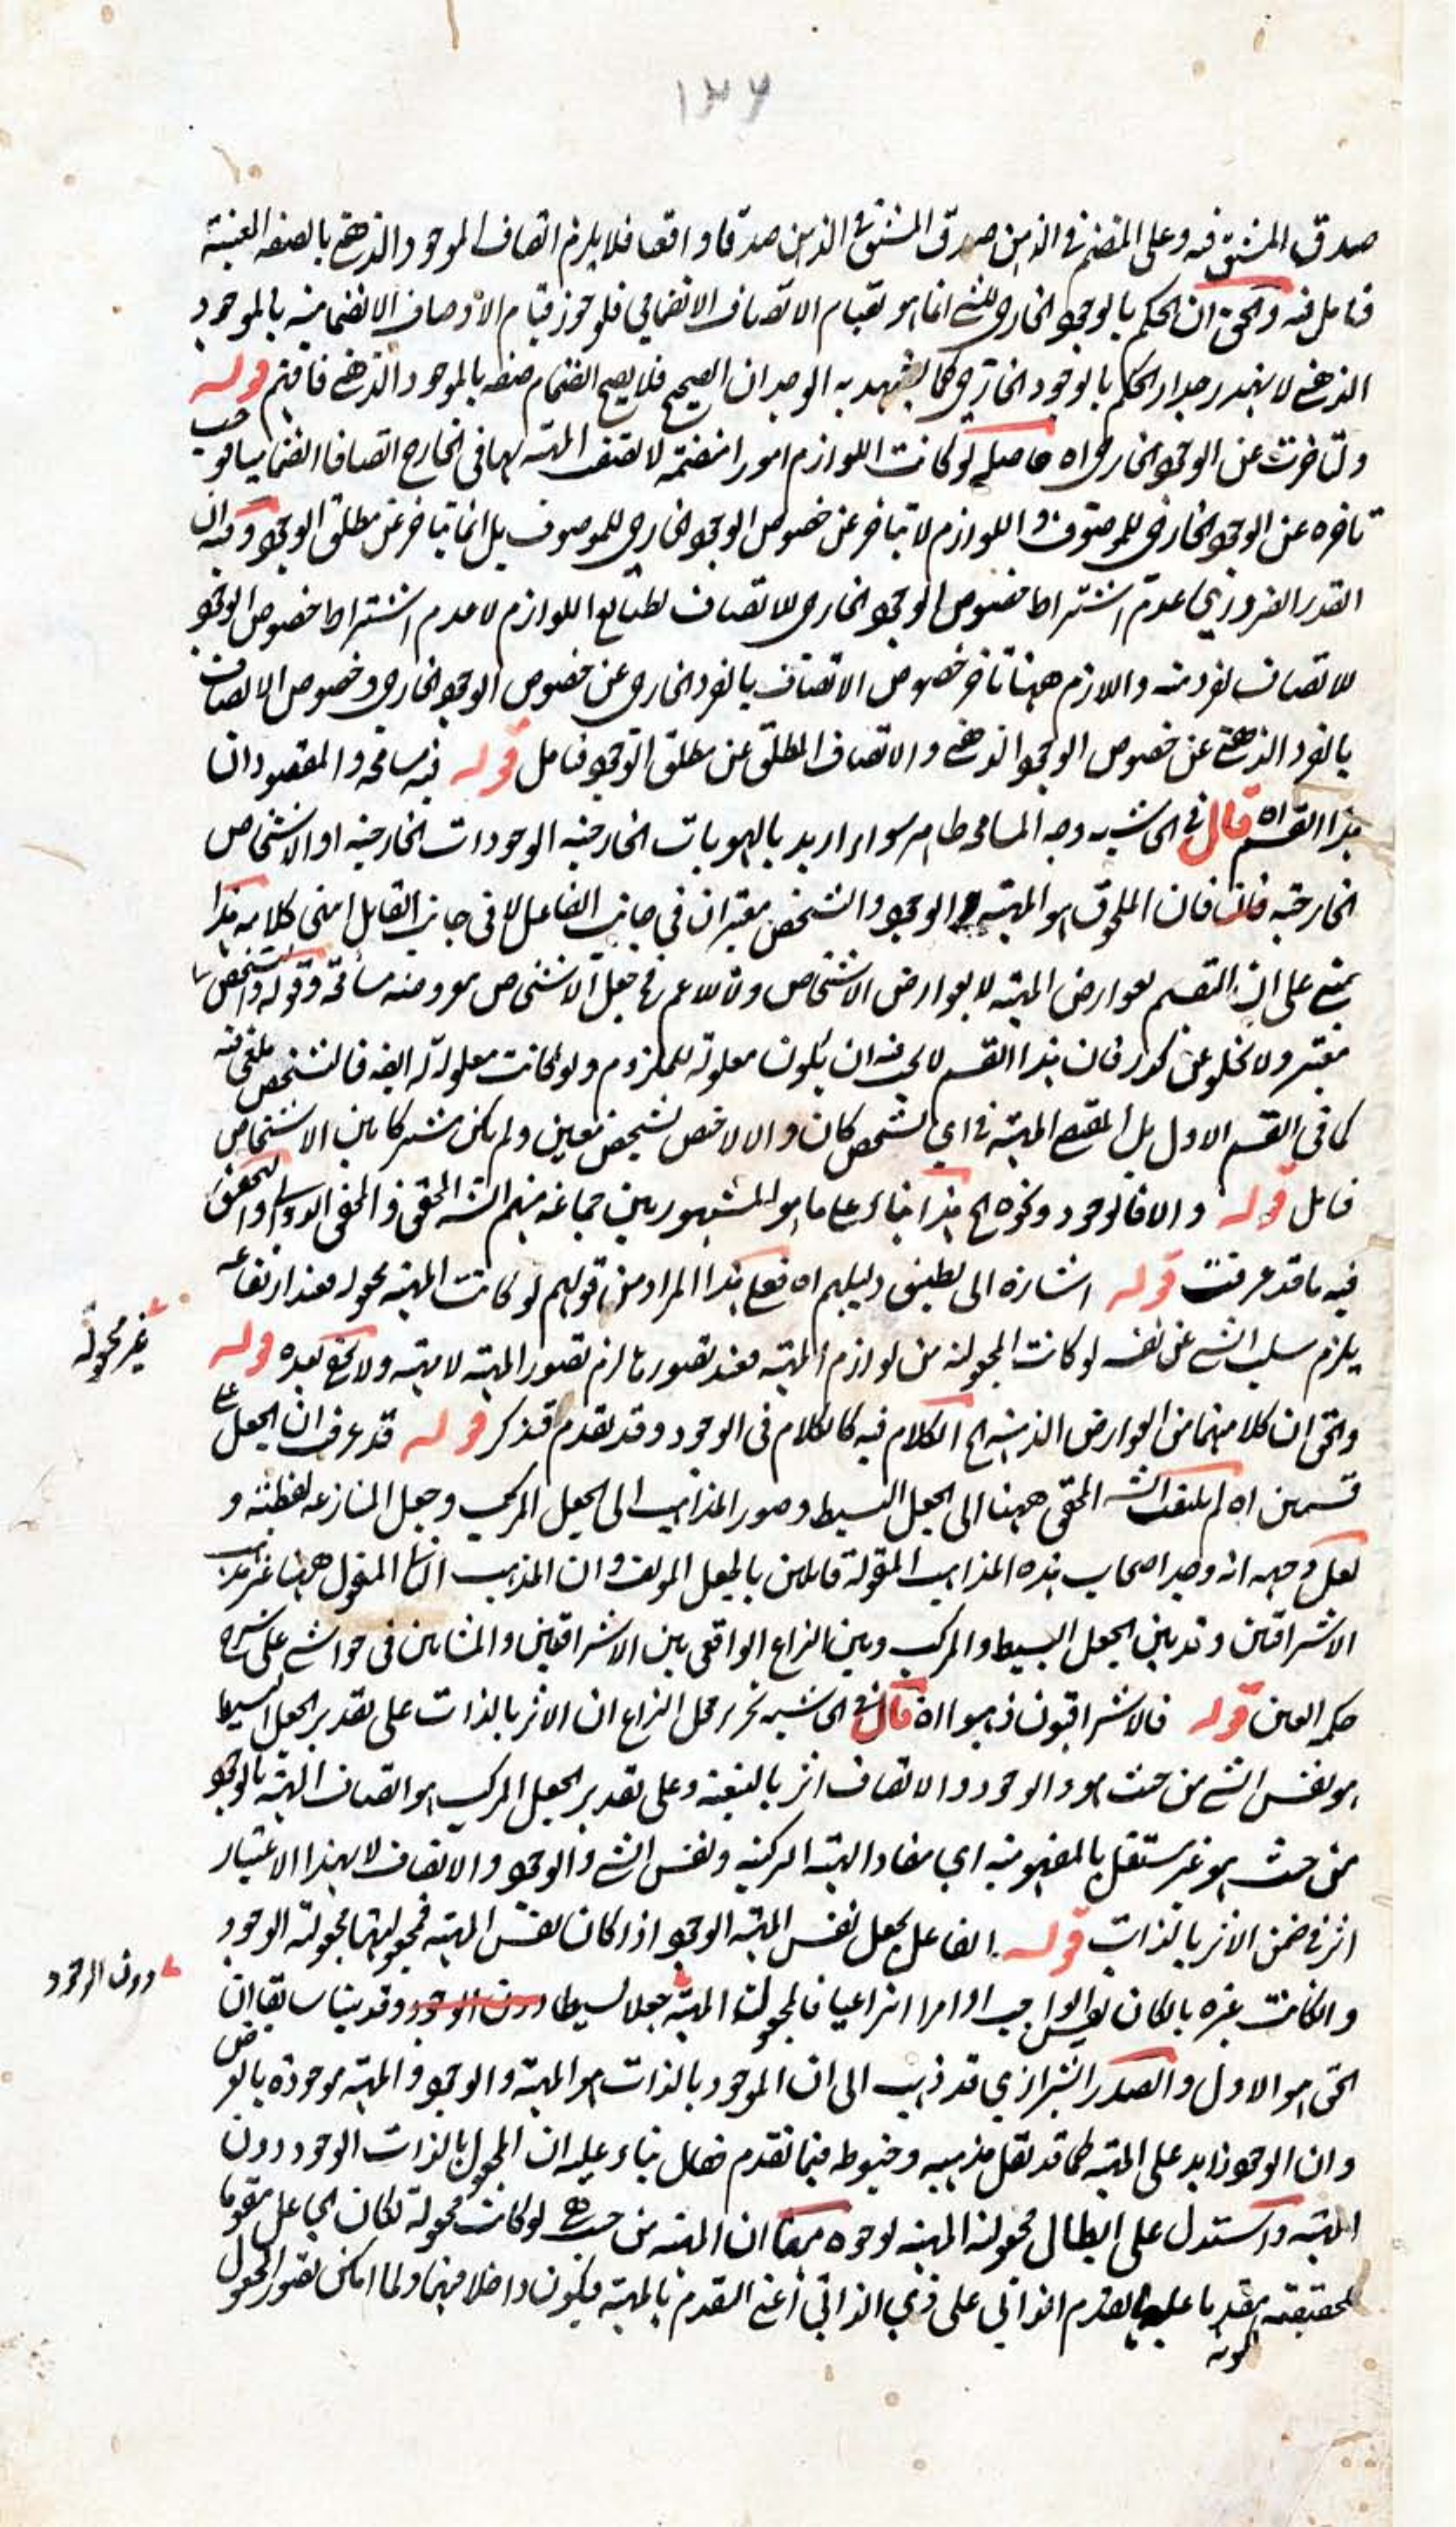 ١٣٦
صدق المشتق فيه وعلى المنضم في الذهن صدق المشتق في الذهن صدقا واقعا فلا يلزم اتصاف الموجود الذهني بالصفة العينية
فتامل فيه والحق ان الحكم بالوجود الخارجي للشے انما هو بقيام الاتصاف الانضمامي فلو جوز قيام الاوصاف الانضمامية بالموجود
الذهني لا ينهدر جدار الحكم بالوجود الخارجي كما يشهد به الوجدان الصحيح فلا يصح انضمام صفة بالموجود الذهني فافهم قوله
ولتاخرت عن الوجود الخارجي اه حاصله لو كانت اللوازم امورا منضمة لا تتصف المهية بها في الخارج اتصافا انضماميا فوجب
تاخره عن الوجود الخارجي للموصوف واللوازم لا يتاخر عن خصوص الوجود الخارجي للموصوف بل انما يتاخر عن مطلق الوجود وفيه ان
القدر الضروري عدم اشتراط خصوص الوجود الخارجي للاتصاف لطبايع اللوازم لا عدم اشتراط خصوص الوجود
للاتصاف لفرد منه واللازم ههنا تاخر خصوص الاتصاف بالفرد الخارجي عن خصوص الوجود الخارجي وخصوص الاتصاف
بالفرد الذهني عن خصوص الوجود الذهني والاتصاف المطلق عن مطلق الوجود فتامل قوله فيه سامحة والمقصود ان
هذا القسم اه قال في الحاشية وجه المسامحة ظاهر سواء اريد بالهويات الخارجية الوجودات الخارجية او الاشخاص
الخارجية فان الملحوق هو المهية والوجود والتشخص معتبران في جانب الفاعل لا في جانب القابل انتهى كلامه هذا
يبتني على ان التقسيم لعوارض المهية لا لعوارض الاشخاص ولا للاعم ففي جعل الاشخاص معروضة مسامحة وقوله والتشخص
معتبر ولا يخلو عن كدر فان هذا القسم لا يجب فيه ان يكون معلولة للملزوم ولو كانت معلولة له ايضا فالتشخص ملغى فيه
كما في القسم الاول بل المقتضي المهية في اي تشخص كان والا لاختص بتشخص معين ولم يكن مشتركا بين الاشخاص
فتامل قوله والا فالوجود ونحوه الخ هذا بناء على ما هو المشهور بين جماعة منهم الشه المحقق والمحقق الدواني والتحقيق
فيه ما قد عرفت قوله اشارة الى تطبيق دليلهم اه فعلى هذا المراد من قولهم لو كانت المهية مجعولة فعند ارتفاعه
يلزم سلب الشے عن نفسه لو كانت المجعولية من لوازم المهية فعند تصورها لزم تصور المهية لا مهية ولا يخفى بعده قوله
غير مجعولة
والحق ان كلا منهما من العوارض الذهنية الخ الكلام فيه كالكلام في الوجود وقد تقدم فتذكر قوله قد عرف ان الجعل على
قسمين اه لم يلتفت الشه المحقق ههنا الى الجعل البسيط وصور المذاهب الى الجعل المركب وجعل المنازعة لفظية و
لعل وجهه انه وجد اصحاب هذه المذاهب المنقولة قائلين بالجعل المولف وان المذهب الثالث المنقول ههنا غير مذهب
الاشراقين وقد بين الجعل البسيط والمركب وبين النزاع الواقع بين الاشراقيين والمشائين في حواشيه على شرح
حكمة العين قوله فالاشراقيون ذهبوا اه قال في الحاشية تحرير محل النزاع ان الاثر بالذات على تقدير الجعل البسيط
هو نفس الشے من حيث هو والوجود والاتصاف اثر بالتبعية وعلى تقدير الجعل المركب هو اتصاف المهية بالوجود
من حيث هو غير مستقل بالمفهومية اي مفاد الهيئة التركيبية ونفس الشے والوجود والاتصاف لا بهذا الاعتبار
اثر في ضمن الاثر بالذات قوله الفاعل يجعل نفس المهية الوجود اذا كان نفس المهية فمجعوليتها مجعولية الوجود
وان كانت غيره بان كان نفس الواجب او امرا انتزاعيا فالمجعولة المهية جعلا بسيطا دون الوجود وقد بينا سابقا ان
دون الوجود
الحق هو الاول والصدر الشيرازي قد ذهب الى ان الموجود بالذات هو المهية والوجود والمهية موجودة بالعرض
وان الوجود زايد على المهية كما قد نقل مذهبه وخبوطه فيما تقدم فقال بناء عليه ان المجعول بالذات الوجود دون
المهية واستدل على ابطال مجعولية المهية بوجوه منها ان المهية من حيث هي لو كانت مجعولة لكان الجاعل مقوما
لحقيقته مقدما عليها تقدم الذاتي على ذي الذاتي اعني التقدم بالمهية فيكون داخلا فيها ولما امكن تصور المجعول